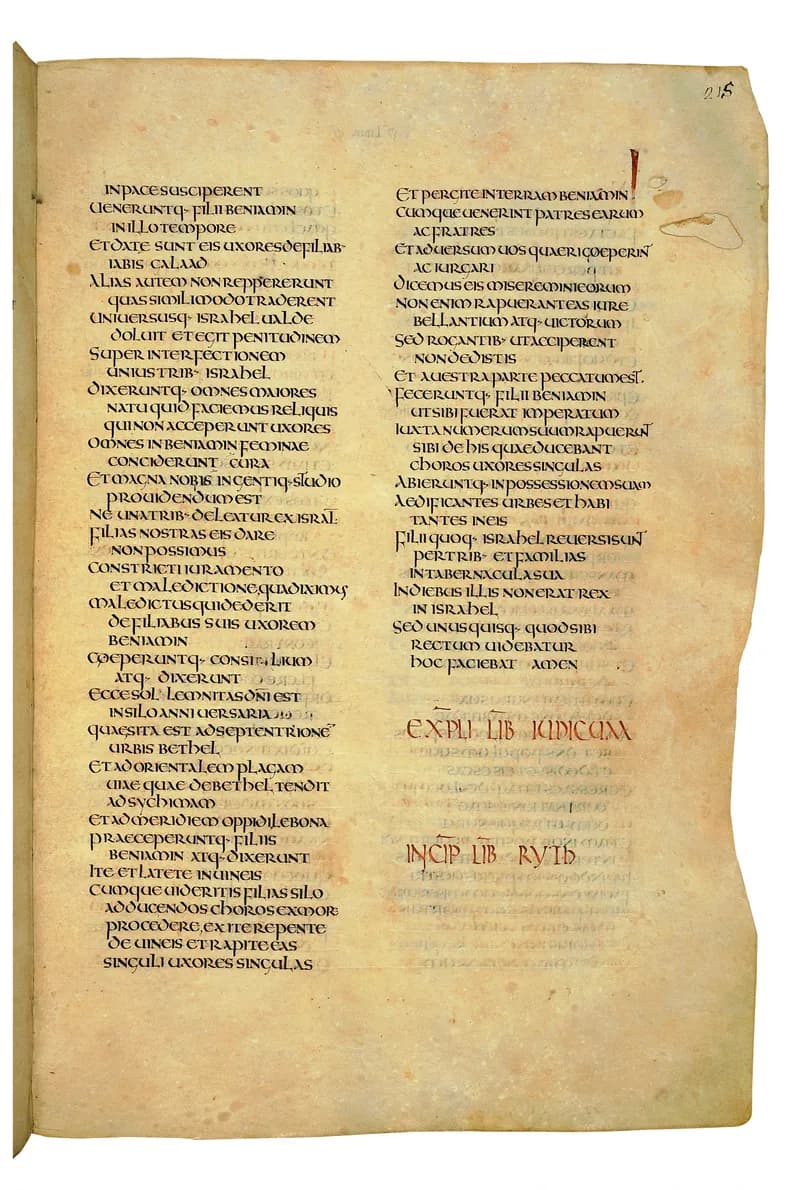 215
IN PACE SUSCIPERENT
UENERUNTQ· FILII BENIAMIN
IN ILLO TEMPORE
ET DATE SUNT EIS UXORES DE FILIAB·
IABIS CALAAD
ALIAS AUTEM NON REPPERERUNT
QUAS SIMILI MODO TRADERENT
UNIUERSUSQ· ISRAHEL UALDE
DOLUIT ET EGIT PENITUDINEM
SUPER INTERFECTIONEM
UNIUS TRIB· ISRAHEL
DIXERUNTQ· OMNES MAIORES
NATU QUID FACIEMUS RELIQUIS
QUI NON ACCEPERUNT UXORES
OMNES IN BENIAMIN FEMINAE
CONCIDERUNT CURA
ET MAGNA NOBIS INGENTIQ· STUDIO
PROUIDENDUM EST
NE UNA TRIB· DELEATUR EX ISRAL·
FILIAS NOSTRAS EIS DARE
NON POSSIMUS
CONSTRICTI IURAMENTO
ET MALEDICTIONE, QUA DIXIMUS
MALEDICTUS QUI DEDERIT
DE FILIABUS SUIS UXOREM
BENIAMIN
COEPERUNTQ· CONSILIUM
ATQ· DIXERUNT
ECCE SOLLEMNITAS DN̄I EST
IN SILO ANNIUERSARIA
QUAE SITA EST AD SEPTENTRIONĒ
URBIS BETHEL
ET AD ORIENTALEM PLAGAM
UIAE QUAE DE BETHEL TENDIT
AD SYCHIMAM
ET AD MERIDIEM OPPIDI LEBONA
PRAECEPERUNTQ· FILIIS
BENIAMIN ATQ· DIXERUNT
ITE ET LATETE IN UINEIS
CUMQUE UIDERITIS FILIAS SILO
AD DUCENDOS CHOROS EX MOR·
PROCEDERE, EXITE REPENTE
DE UINEIS ET RAPITE EAS
SINGULI UXORES SINGULAS
ET PERGITE IN TERRAM BENIAMIN
CUMQUE UENERINT PATRES EARUM
AC FRATRES
ET ADUERSUM UOS QUAERI COEPERINT
AC IURGARI
DICEMUS EIS MISEREMINI EORUM
NON ENIM RAPUERANT EAS IURE
BELLANTIUM ATQ· UICTORUM
SED ROGANTIB· UT ACCIPERENT
NON DEDISTIS
ET A UESTRA PARTE PECCATUM EST.
FECERUNTQ· FILII BENIAMIN
UT SIBI FUERAT IMPERATUM
IUXTA NUMERUM SUUM RAPUERUNT
SIBI DE HIS QUAE DUCEBANT
CHOROS UXORES SINGULAS
ABIERUNTQ· IN POSSESSIONEM SUAM
AEDIFICANTES URBES ET HABI
TANTES IN EIS
FILII QUOQ· ISRAHEL REUERSI SUNT
PER TRIB· ET FAMILIAS
IN TABERNACULA SUA
IN DIEBUS ILLIS NON ERAT REX
IN ISRAHEL
SED UNUSQUISQ· QUOD SIBI
RECTUM UIDEBATUR
HOC FACIEBAT AMEN
EXPLI LIB̄ IUDICUM
INCIP̄ LIB̄ RUTH